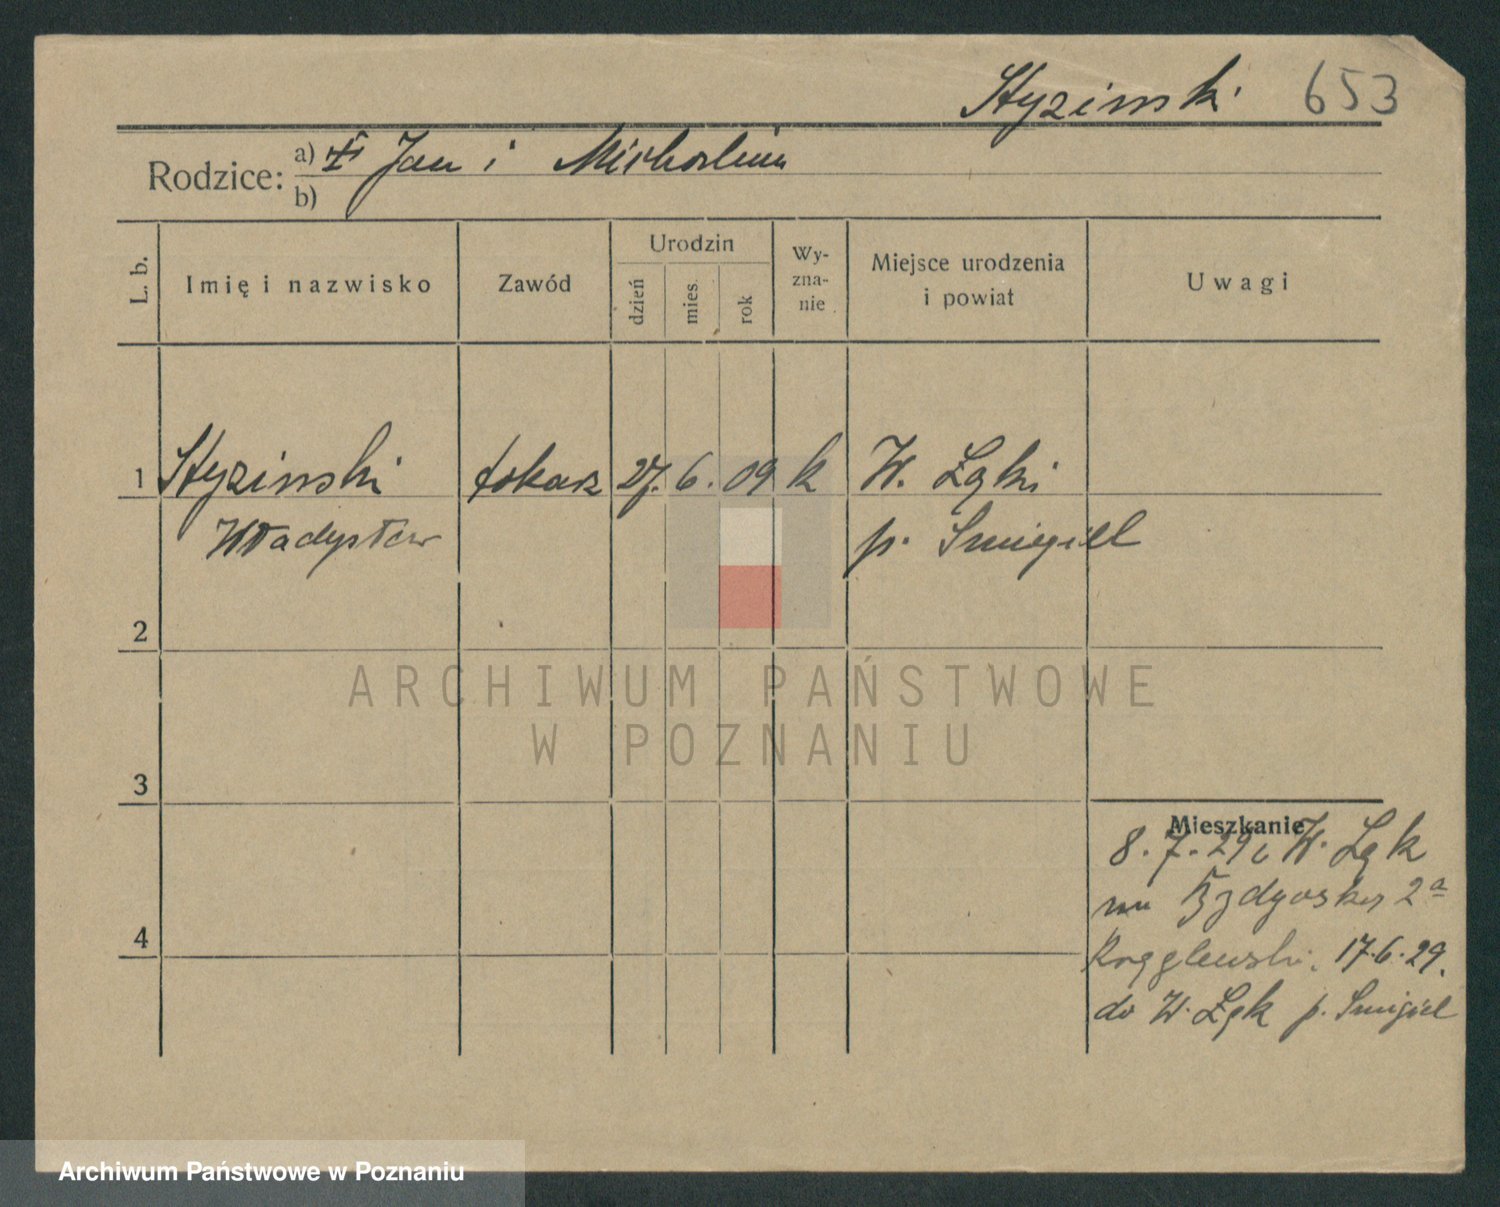 Styzinski 653
Rodzice: a) Jan i Michalina
b)
L. b. Imię i nazwisko Zawód Urodzin dzień mies. rok Wy-zna-nie Miejsce urodzenia i powiat Uwagi
1 Styzinski tokarz 27. 6. 09 k W. Łąki
Władysław p. Smigiel
2
3
Mieszkanie
8. 7. 29 W. Łąk
na Bydgoska 2a
4
17.6.29.
do W. Łąk p. Smigiel
ARCHIWUM PAŃSTWOWE
W POZNANIU
Archiwum Państwowe w Poznaniu